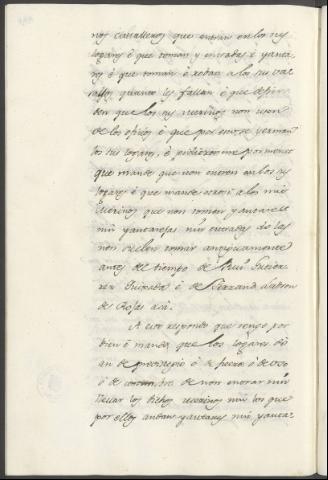 nos caballeros que entran en los sus
logares é que toman y entradas é yanta-
res é que toman é roban a los sus vas
sallos quanto les fallan é que defien
den que los sus merinos non usen
de los oficios é que por esto se yerman
los sus logares, é pidieronme por merced
que mande que non entren en los sus
logares é que mande otrosi a los mis
merinos que non tomen yantares
nin yantarejas nin entradas do las
non suelen tomar antiguamente
antes del tiempo de Rui Gutier
rez Quixada é de Ferrand Ladron
de Rojas acá.
A esto respondo que tengo por
bien é mando que los logares dó
an de previlegio ó de fuero ó de uso
ó de costumbre de non entrar nin
llevar los dichos merinos nin los que
por ellos andan yantares nin yanta-